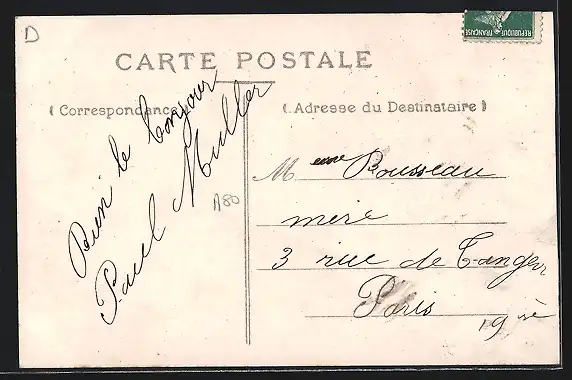 D
REPUBLIQUE FRANÇAISE
CARTE POSTALE
( Correspondance )
( Adresse du Destinataire )
Bien le bonjour
Paul Muller
A80
Meme Rousseau
mère
3 rue de Tanger
Paris
19me